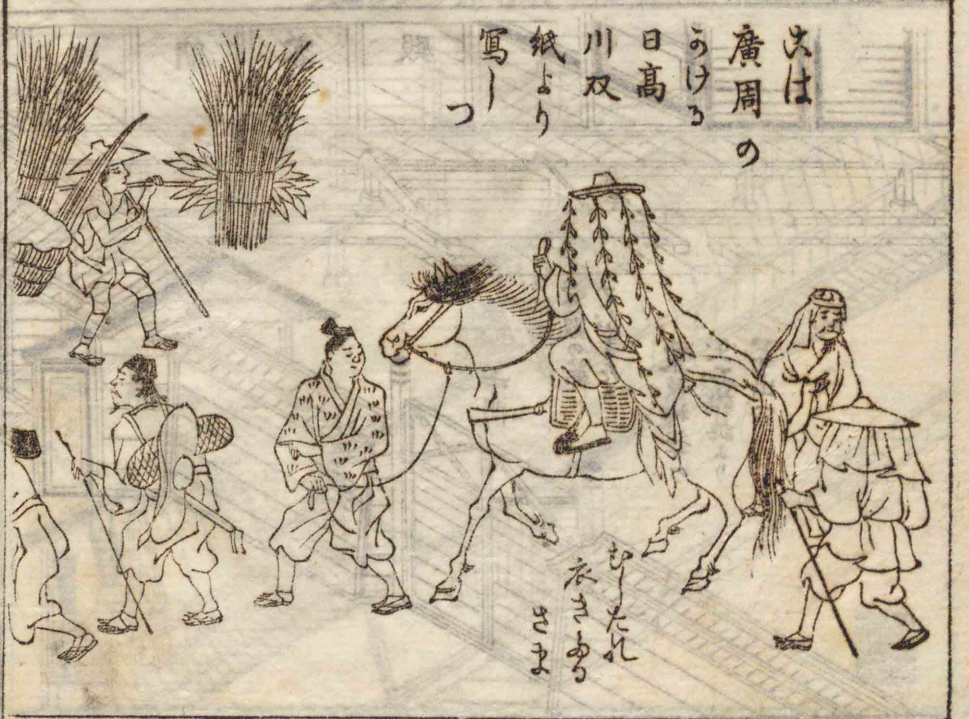 こは
廣周の
かける
日高
川双
紙より
寫し
つ
むしたれ
衣きたる
さま